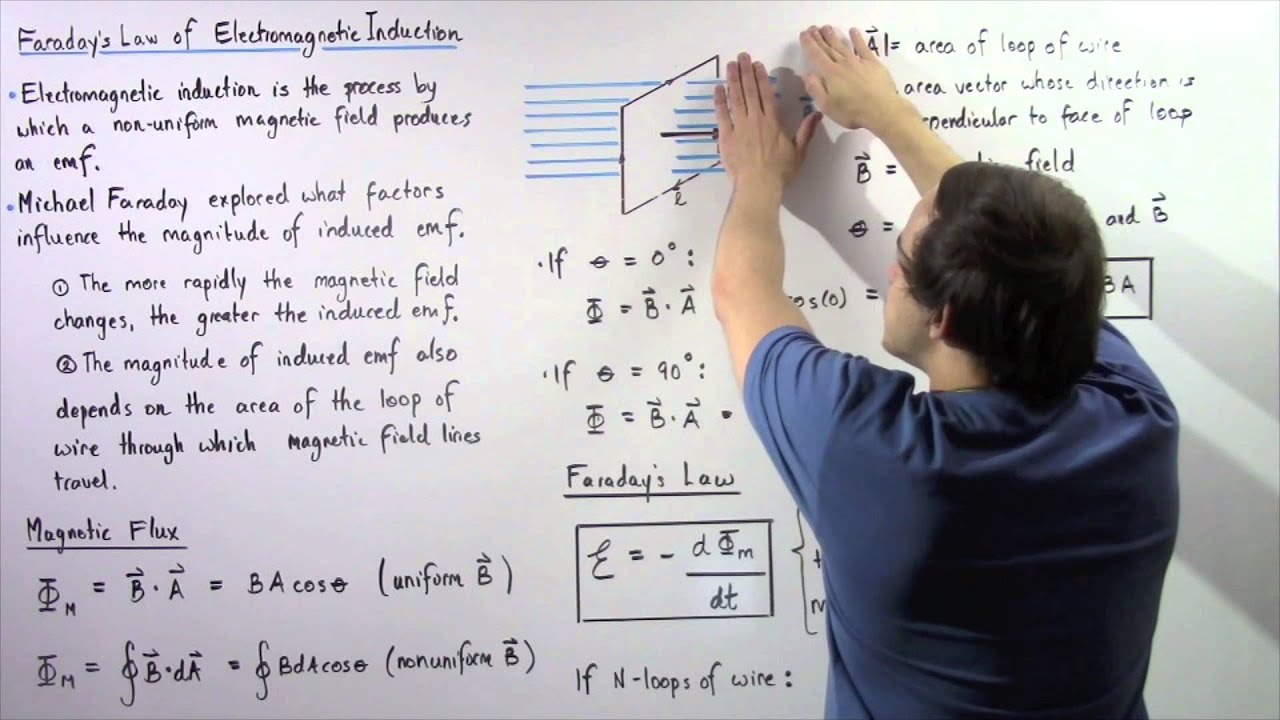 Faraday's Law of Electromagnetic Induction
• Electromagnetic induction is the process by
which a non-uniform magnetic field produces
an emf.
• Michael Faraday explored what factors
influence the magnitude of induced emf.
① The more rapidly the magnetic field
changes, the greater the induced emf.
② The magnitude of induced emf also
depends on the area of the loop of
wire through which magnetic field lines
travel.
Magnetic Flux
Φ_M = B⃗ · A⃗ = BAcosθ (uniform B⃗)
Φ_M = ∮B⃗·dA⃗ = ∮BdAcosθ (nonuniform B⃗)
ℓ
• If θ = 0°:
Φ = B⃗ · A⃗ cos(0) = BA
• If θ = 90°:
Φ = B⃗ · A⃗
Faraday's Law
ℰ = - dΦ_m/dt
If N-loops of wire:
|A⃗| = area of loop of wire
area vector whose direction is
to face of loop
B⃗ = field
θ = and B⃗